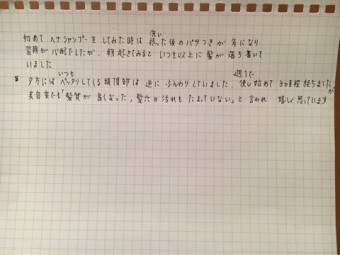 初めて ヘナシャンプーを してみた時は 使った後のパサつきが 気になり
翌朝が 心配でしたが、朝起きてみると いつも以上に 髪が 落ち着いて
いました
夕方には いつも ペッタリしてくる頭頂部は 逆に ふんわりしていました。使い始めて 3ヶ月程 経ちましたが
美容室でも「髪質が 良くなった、 汚れも たまっていない」と 言われ 嬉しく 思っています